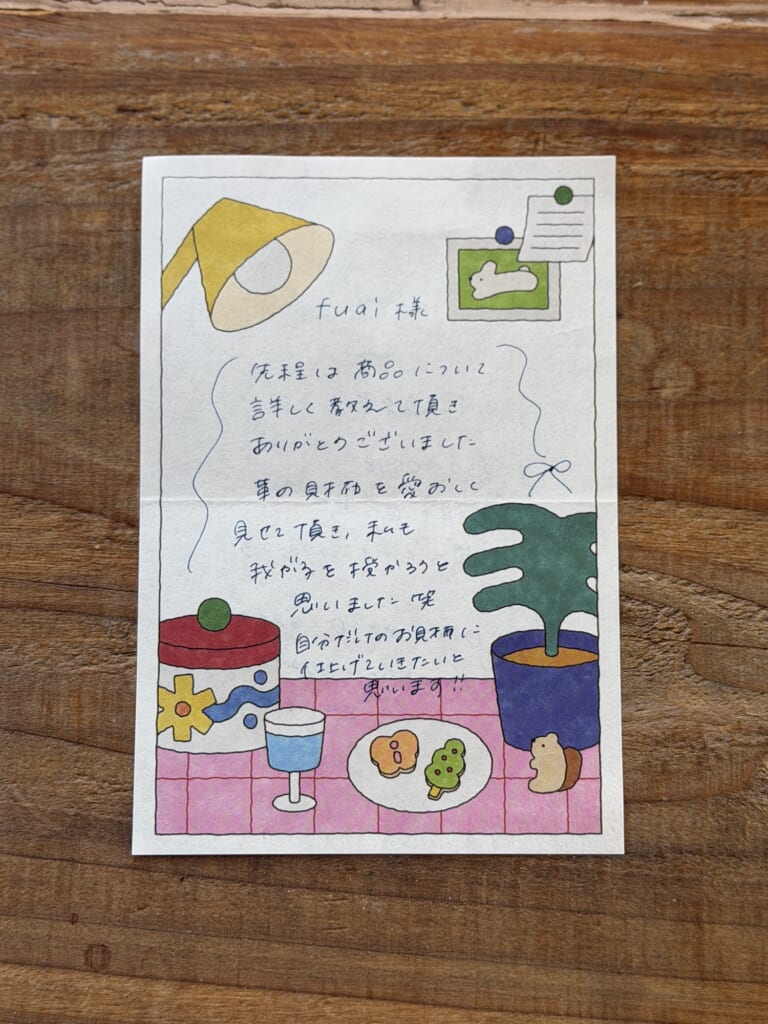 fuai 様
先程は 商品について
詳しく 教えて頂き
ありがとうございました
革の財布を愛おしく
見せて頂き、私も
我が子を授かろうと
思いました 笑
自分だけのお財布に
仕上げていきたいと
思います!!